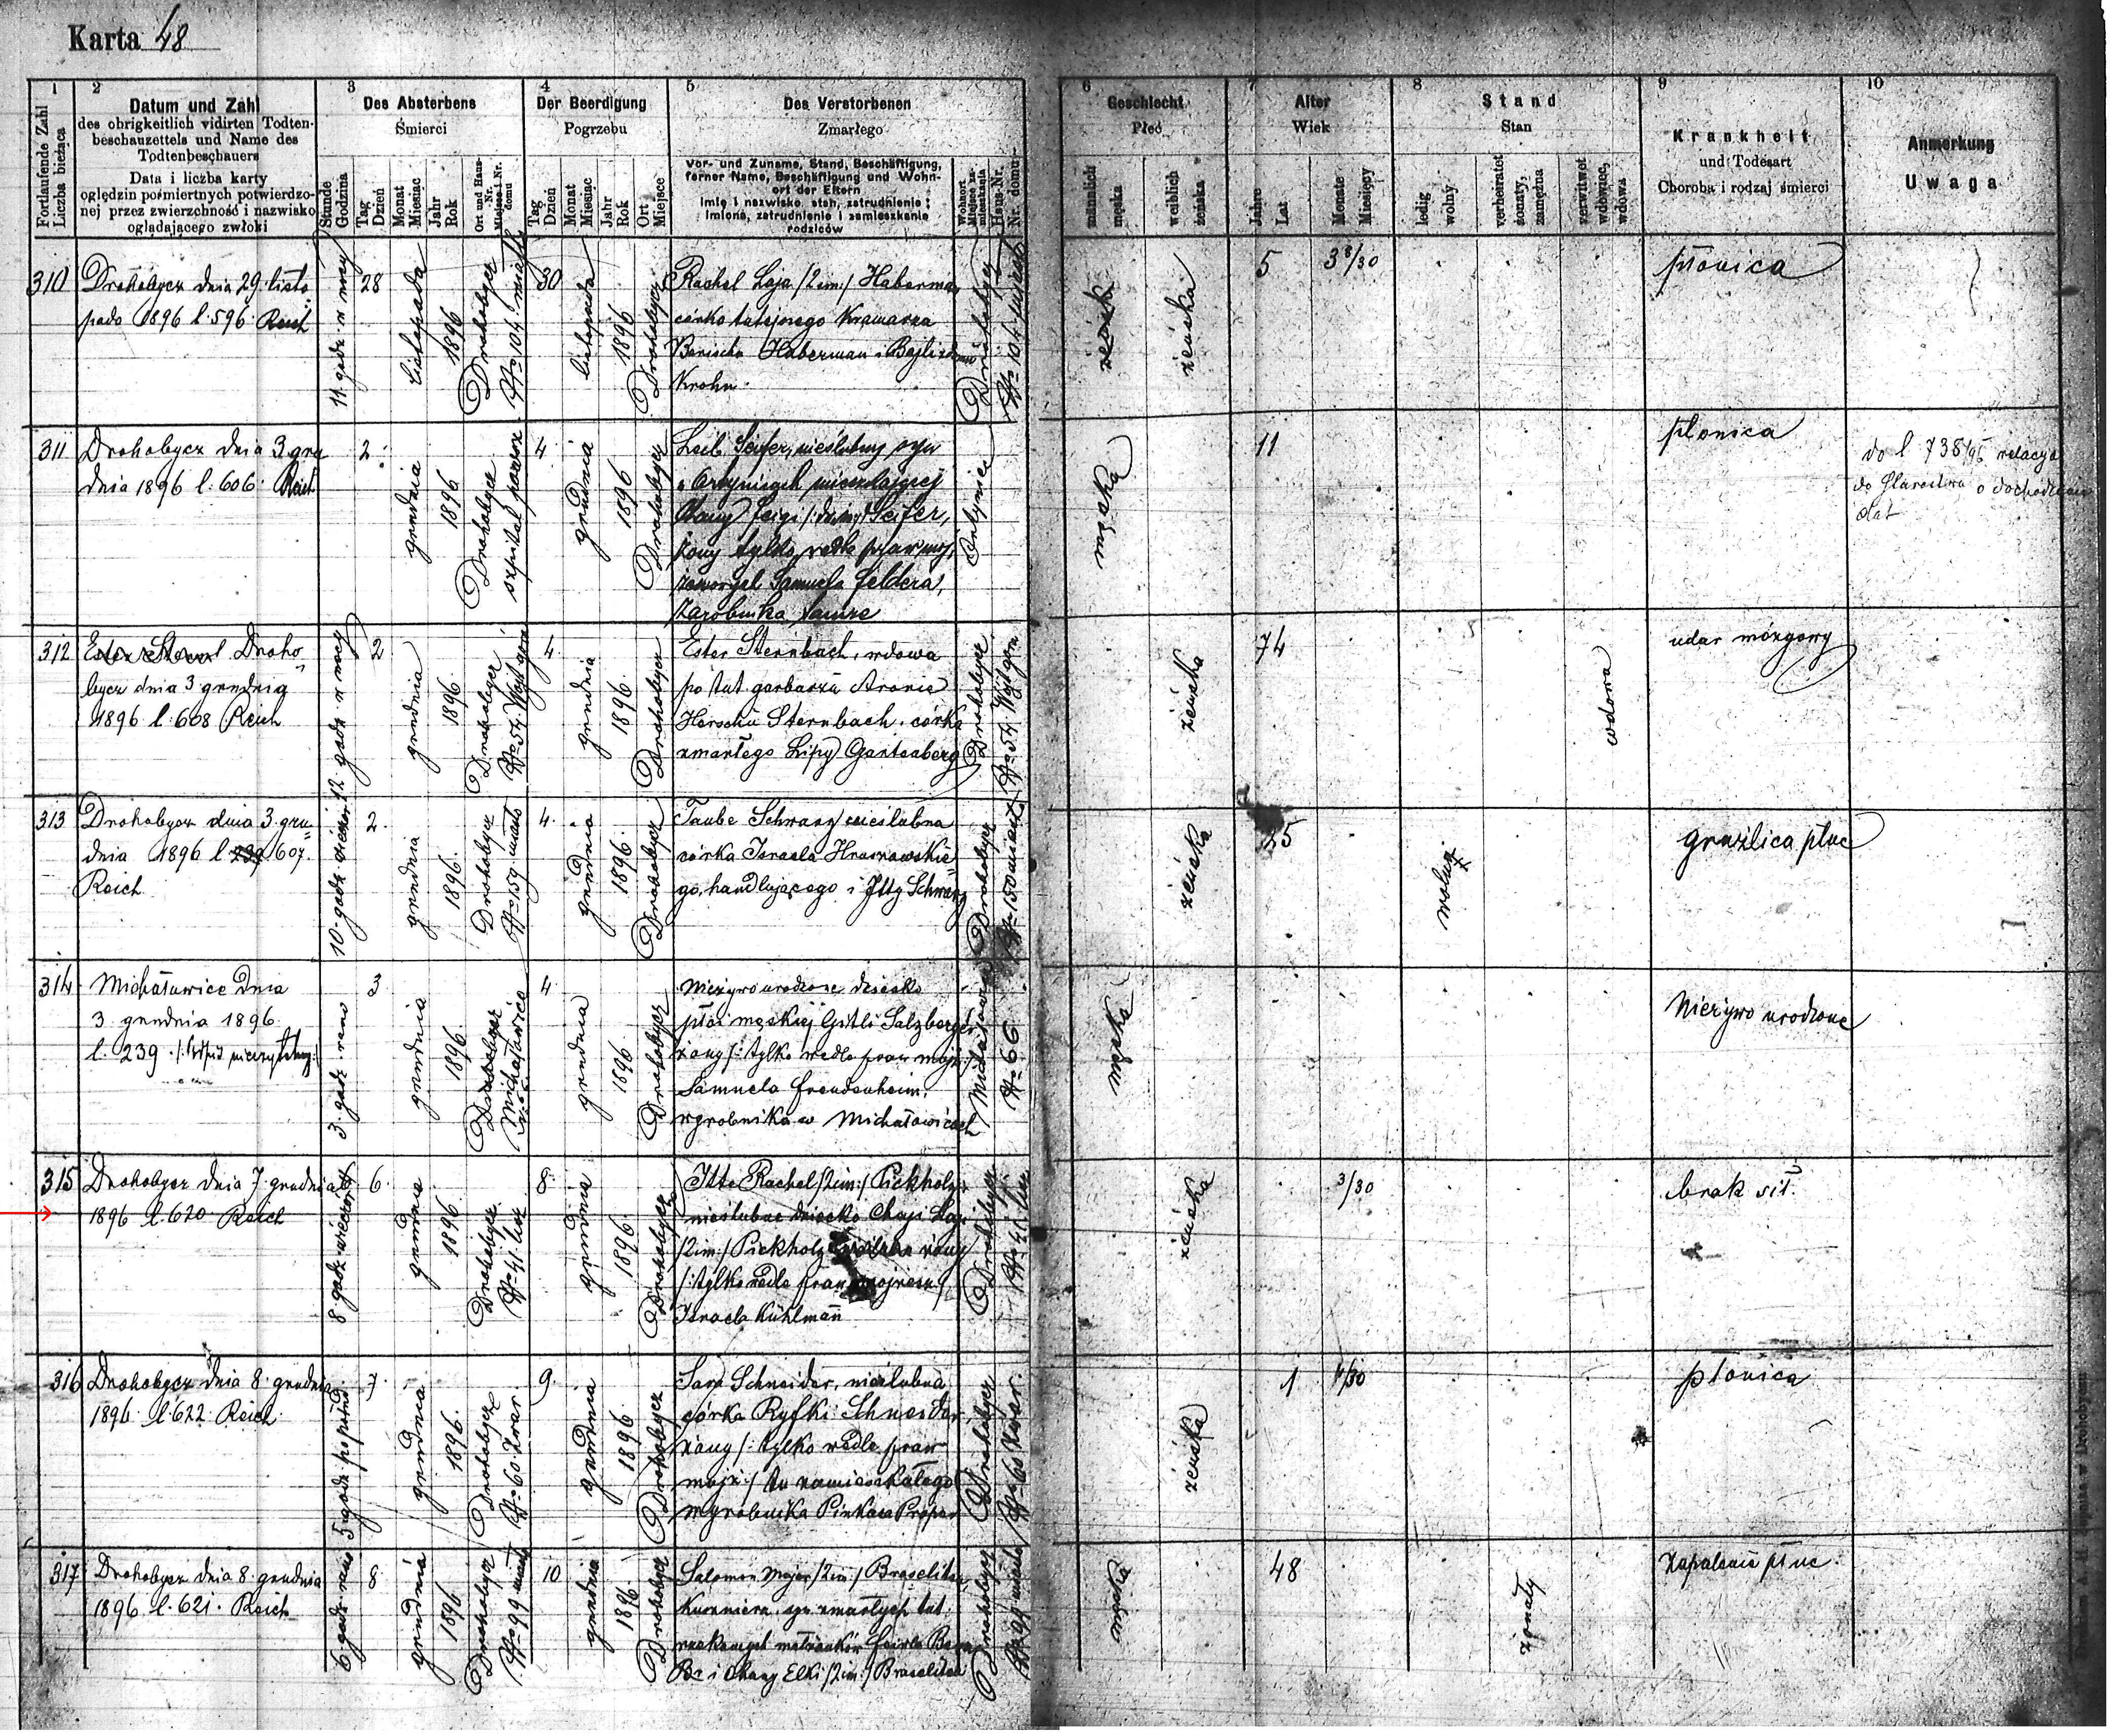 Karta 48
1
Fortlaufende Zahl
Liczba bieżąca
2
Datum und Zahl
des obrigkeitlich vidirten Todten-
beschauzettels und Name des
Todtenbeschauers
Data i liczba karty
oględzin pośmiertnych potwierdzo-
nej przez zwierzchność i nazwisko
oglądającego zwłoki
3
Des Absterbens
Śmierci
Stunde
Godzina
Tag
Dzień
Monat
Miesiąc
Jahr
Rok
Ort und Haus-
Nr.
Miejsce i Nr.
domu
4
Der Beerdigung
Pogrzebu
Tag
Dzień
Monat
Miesiąc
Jahr
Rok
Ort
Miejsce
5
Des Verstorbenen
Zmarłego
Vor- und Zuname, Stand, Beschäftigung,
ferner Name, Beschäftigung und Wohn-
ort der Eltern
Imię i nazwisko, stan, zatrudnienie;
imiona, zatrudnienie i zamieszkanie
rodziców
Wohnort
Miejsce za-
mieszkania
Haus-Nr.
Nr. domu
6
Geschlecht
Płeć
männlich
męska
weiblich
żeńska
7
Alter
Wiek
Jahre
Lat
Monate
Miesięcy
8
Stand
Stan
ledig
wolny
verheiratet
żonaty,
zamężna
verwitwet
wdowiec,
wdowa
9
Krankheit
und Todesart
Choroba i rodzaj śmierci
10
Anmerkung
Uwaga
310
Drohobycz dnia 29. listo
pada 1896 l. 596. Reich
11 godz. w nocy
28
listopada
1896
Drohobycz
No 104 miasto
30
listopada
1896
Drohobycz
Rachel Laja /2 im/ Haberman
córka tutejszego Kramarza
Berischa Haberman i Bajli
Krohn
Drohobycz
No 104 miasto
żeńska
5
3 8/30
płonica
311
Drohobycz dnia 3. gru
dnia 1896 l. 606. Reich
2.
grudnia
1896
Drohobycz
szpital powsz.
4.
grudnia
1896
Drohobycz
Leib Seifer, nieślubny syn
Seifer,
żony tylko wedle praw moj.
Samuela Feldera,
zarobnika
męska
11
płonica
do l. 738/96 relacya
do Starostwa o
312
Droho
bycz dnia 3 grudnia
1896 l. 608 Reich
12 godz. w nocy
2.
grudnia
1896.
Drohobycz
No 54 Wójt. góra
4.
grudnia
1896.
Drohobycz
Ester Sternbach, wdowa
po tut. garbarzu Aronie
Herschu Sternbach, córka
zmarłego Lipy Gartenberg
Drohobycz
No 54 Wójt. góra
żeńska
74
wdowa
udar mózgowy
313
Drohobycz dnia 3. gru
dnia 1896 l. 607.
Reich
10. godz. wieczor
2.
grudnia
1896.
Drohobycz
No 159 miasto
4.
grudnia
1896.
Drohobycz
Taube Schwarz nieślubna
córka Israela Hruszowskie
go, handlującego i Itty Schwarz
Drohobycz
No 150 miasto
żeńska
25
wolna
gruźlica płuc
314
Michałowice dnia
3. grudnia 1896.
l. 239.
3 godz. rano
3
grudnia
1896
Michałowice
4.
grudnia
1896
Drohobycz
Nieżywo urodzone dziecko
płci męskiej Gittli Salzberger
żony /: tylko wedle praw mojż:/
Samuela Freudenheim,
wyrobnika w Michałowicach
Michałowice
No 66
męska
Nieżywo urodzone
315
Drohobycz dnia 7. grudnia
1896 l. 620. Reich
8 godz. wieczorem
6.
grudnia
1896.
Drohobycz
No 41. Lan
8.
grudnia
1896.
Drohobycz
Itte Rachel /2im:/ Pickholz
nieślubne dziecko Chaji Laji
/2im:/ Pickholz żony
/: tylko wedle praw mojżesz:/
Israela Kühlmann
Drohobycz
No 41 Lan
żeńska
3/30
brak sił.
316
Drohobycz dnia 8. grudnia
1896. l. 622. Reich.
5 godz. popołud.
7.
grudnia
1896.
Drohobycz
No 60 Zwar.
9
grudnia
1896.
Drohobycz
Sara Schneider, nieślubna
córka Ryfki Schneider,
żony /: tylko wedle praw
mojż:/ tu zamieszkałego
wyrobnika Pinkasa Proper
Drohobycz
No 60 Zwar.
żeńska
1
4/30
płonica
317
Drohobycz dnia 8. grudnia
1896. l. 621. Reich
6 godz. rano
8.
grudnia
1896
Drohobycz
No 99 miasto
10
grudnia
1896.
Drohobycz
Salomon Majer /2im:/ Braselitan
Kuśnierz, syn zmarłych tut.
małżonków
i Chany Elki /2im:/ Braseliten
Drohobycz
No 99 miasto
męska
48
żonaty
zapalenie płuc